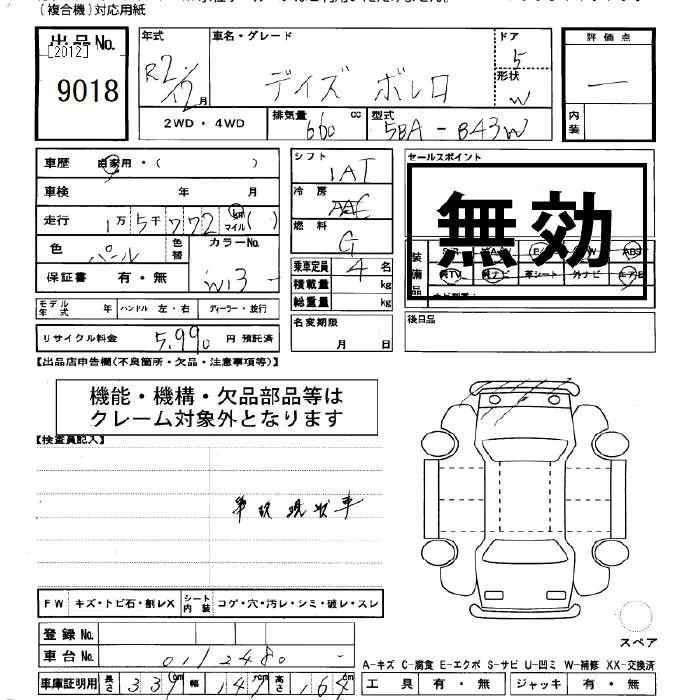 (複合機)対応用紙
出品No.
[2012]
9018
年式
R2/12月
車名・グレード
デイズ ボレロ
ドア
5
形状
W
2WD・4WD
排気量
660 cc
型式
5BA-B43W
評価点
内装
車歴 自家用・( )
車検 年 月
走行 1万5千772 km マイル ( )
色 パール 色替 カラーNo. W13
保証書 有・無
モデル年式 年 ハンドル 左・右 ディーラー・並行
リサイクル料金 5,990 円 預託済
シフト
IAT
冷房
AAC
燃料
G
乗車定員 4 名
積載量 kg
総重量 kg
名変期限
月 日
セールスポイント
無効
装備品
革シート 外ナビ
後日品
【出品店申告欄(不良箇所・欠品・注意事項等)】
機能・機構・欠品部品等は
クレーム対象外となります
【検査員記入】
事故現状車
FW キズ・トビ石・割レX シート内装 コゲ・穴・汚レ・シミ・破レ・スレ
登録No.
車台No. 0112480
車庫証明用 長さ 339cm 幅 147cm 高さ 164cm
スペア
A-キズ C-腐食 E-エクボ S-サビ U-凹ミ W-補修 XX-交換済
工具 有・無 ジャッキ 有・無